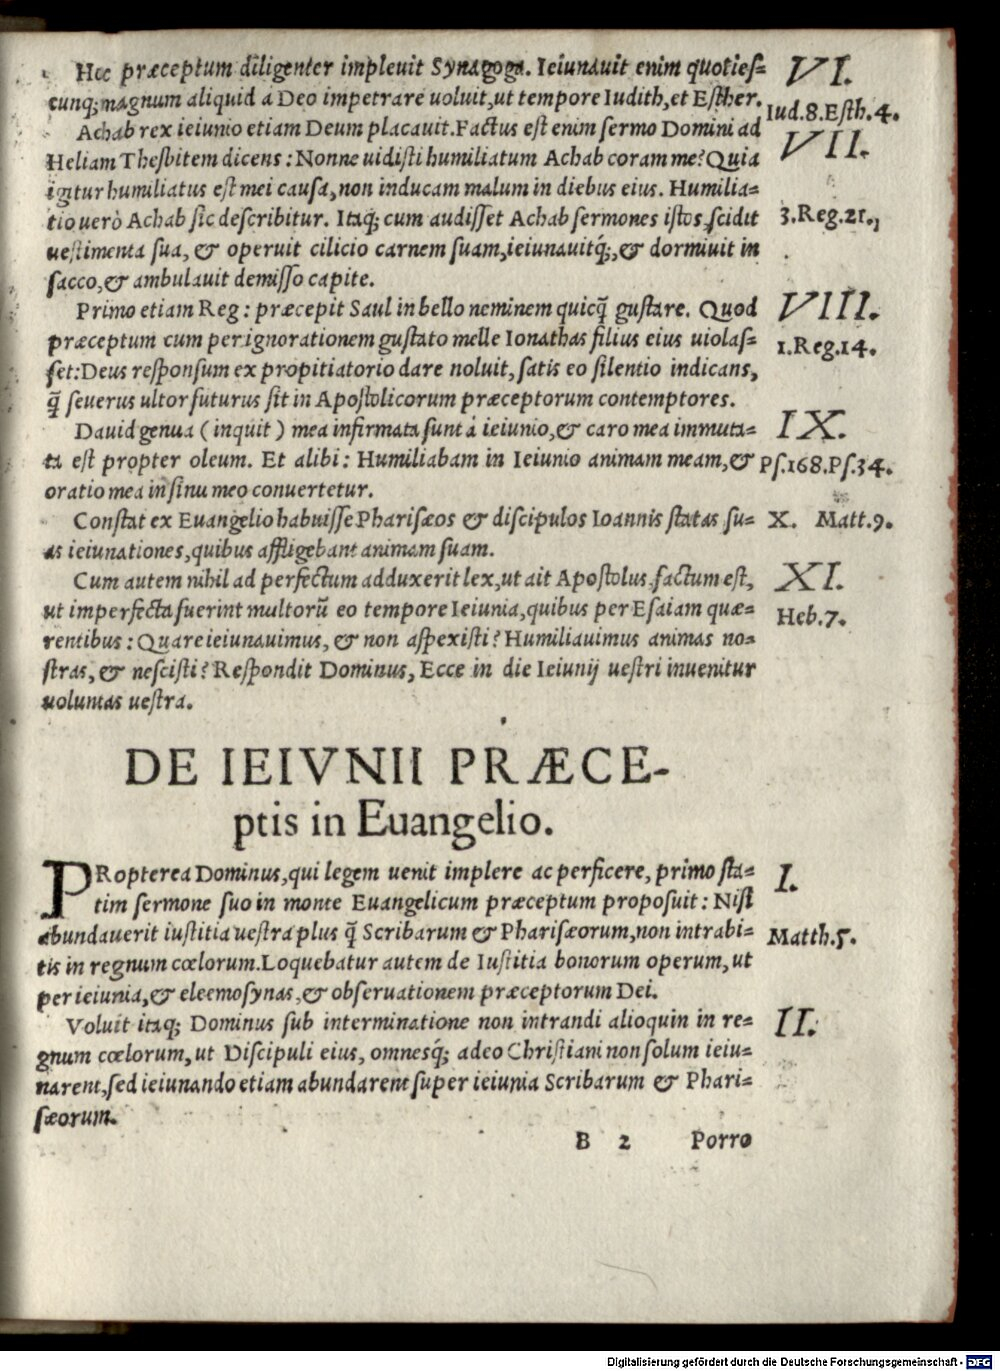 Hoc præceptum diligenter impleuit Synagoga. Ieiunauit enim quotieſ= VI.
cunq; magnum aliquid a Deo impetrare uoluit, ut tempore Iudith, et Eſther. Iud.8.Eſth.4.
Achab rex ieiunio etiam Deum placauit. Factus eſt enim ſermo Domini ad
Heliam Thesbitem dicens: Nonne uidiſti humiliatum Achab coram me? Quia VII.
igitur humiliatus eſt mei cauſa, non inducam malum in diebus eius. Humilia=
tio uerò Achab ſic deſcribitur. Itaq; cum audiſſet Achab ſermones iſtos, ſcidit 3.Reg.21.
ueſtimenta ſua, & operuit cilicio carnem ſuam, ieiunauitq́;, & dormiuit in
ſacco, & ambulauit demiſſo capite.
Primo etiam Reg: præcepit Saul in bello neminem quicq̃ guſtare. Quod VIII.
præceptum cum per ignorationem guſtato melle Ionathas filius eius uiolaſ= 1.Reg.14.
ſet: Deus reſponſum ex propitiatorio dare noluit, ſatis eo ſilentio indicans,
q̃ ſeuerus ultor futurus ſit in Apoſtolicorum præceptorum contemptores.
Dauid genua (inquit) mea infirmata ſunt á ieiunio, & caro mea immuta= IX.
ta eſt propter oleum. Et alibi: Humiliabam in Ieiunio animam meam, & Pſ.168.Pſ.34.
oratio mea in ſinu meo conuertetur.
Conſtat ex Euangelio habuiſſe Phariſæos & diſcipulos Ioannis ſtatas ſu= X. Matt.9.
as ieiunationes, quibus affligebant animam ſuam.
Cum autem nihil ad perfectum adduxerit lex, ut ait Apoſtolus, factum eſt, XI.
ut imperfecta fuerint multorũ eo tempore Ieiunia, quibus per Eſaiam quæ= Heb.7.
rentibus: Quare ieiunauimus, & non aſpexiſti? Humiliauimus animas no=
ſtras, & neſciſti? Reſpondit Dominus, Ecce in die Ieiunij ueſtri inuenitur
uoluntas ueſtra.
DE IEIVNII PRÆCE-
ptis in Euangelio.
PRopterea Dominus, qui legem uenit implere ac perficere, primo ſta= I.
tim ſermone ſuo in monte Euangelicum præceptum propoſuit: Niſi
abundauerit iuſtitia ueſtra plus q̃ Scribarum & Phariſæorum, non intrabi= Matth.5.
tis in regnum cœlorum. Loquebatur autem de Iuſtitia bonorum operum, ut
per ieiunia, & eleemoſynas, & obſeruationem præceptorum Dei.
Voluit itaq; Dominus ſub interminatione non intrandi alioquin in re= II.
gnum cœlorum, ut Diſcipuli eius, omnesq́; adeo Chriſtiani non ſolum ieiu=
narent, ſed ieiunando etiam abundarent ſuper ieiunia Scribarum & Phari=
ſæorum.
B 2 Porro
Digitalisierung gefördert durch die Deutsche Forschungsgemeinschaft - DFG